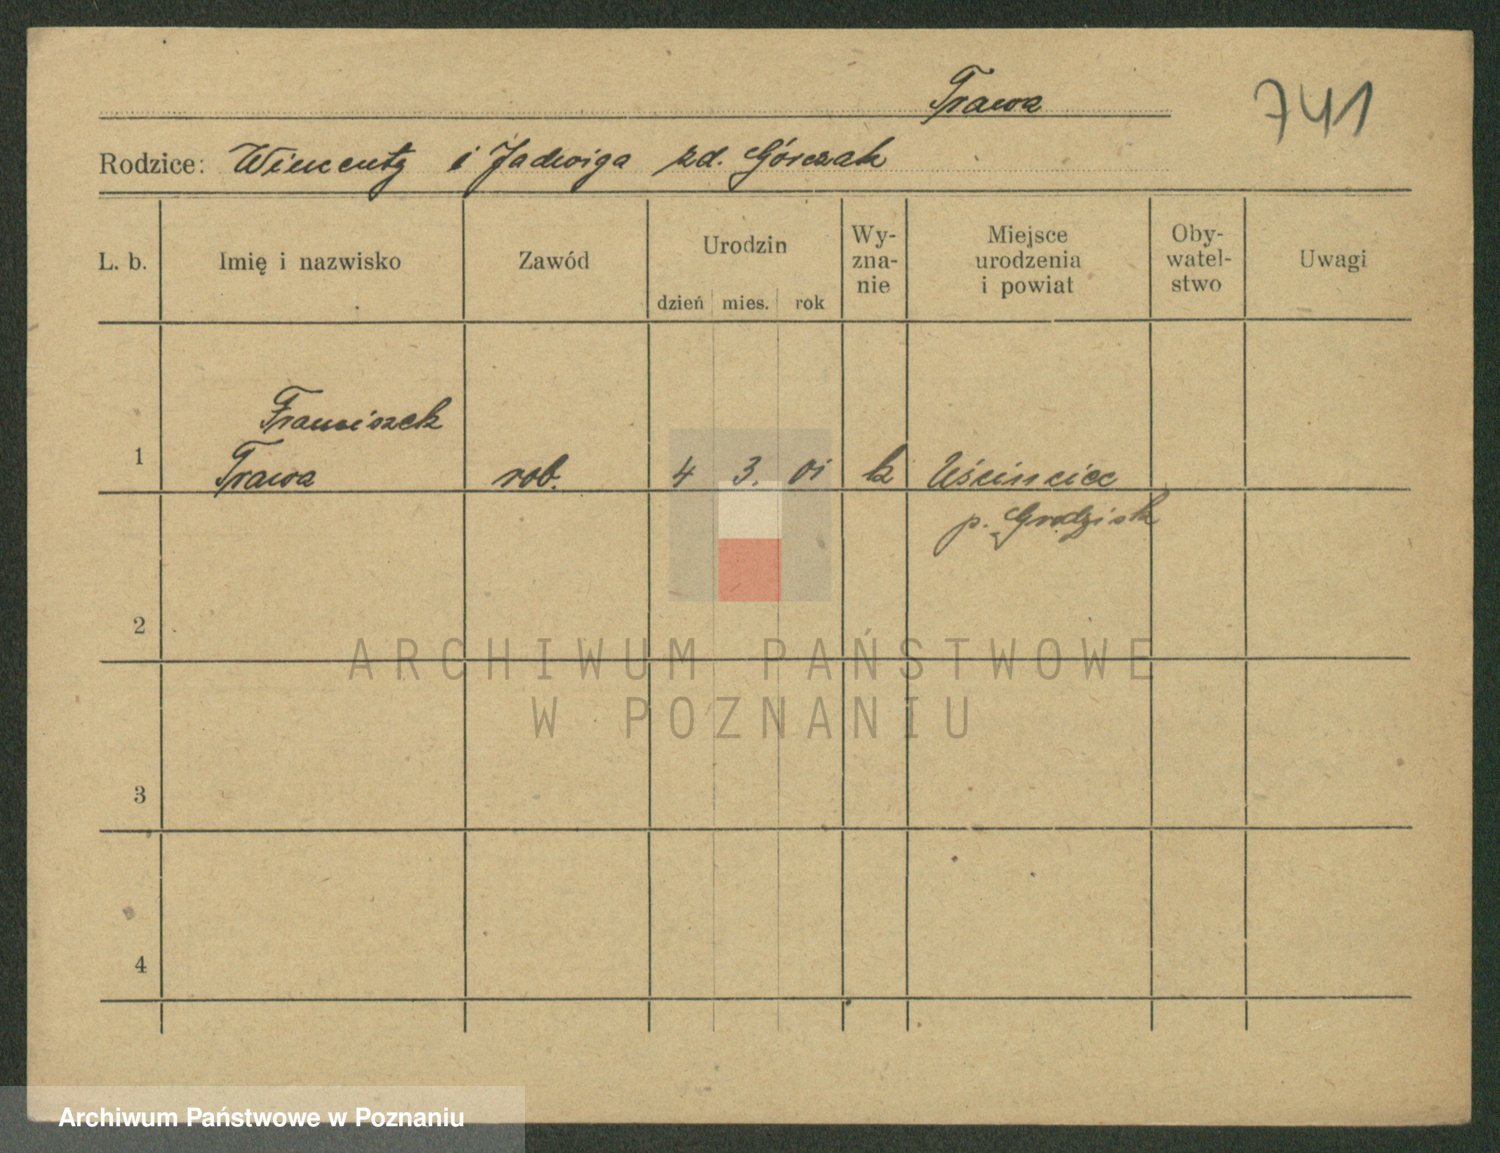 Trawa
741
Rodzice: Wincenty i Jadwiga zd. Górczak
L. b.
Imię i nazwisko
Zawód
Urodzin
dzień mies. rok
Wy-
zna-
nie
Miejsce
urodzenia
i powiat
Oby-
watel-
stwo
Uwagi
Franciszek
1 Trawa rob. 4 3. 01 k Uścięciec
p. Grodzisk
2
3
4
ARCHIWUM PAŃSTWOWE
W POZNANIU
Archiwum Państwowe w Poznaniu